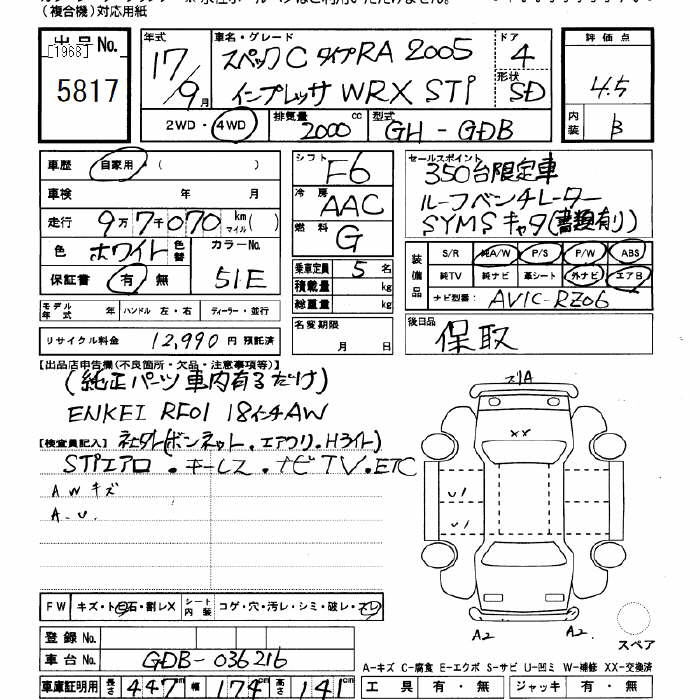 (複合機)対応用紙
出品No.
[1968]
5817
年式
17/9月
車名・グレード
スペックC タイプRA 2005
インプレッサ WRX STI
ドア
4
形状
SD
2WD・4WD
排気量
2000 cc
型式
GH-GDB
評価点
4.5
内装
B
車歴 自家用・( )
車検 年 月
走行 9万7千070 km マイル( )
色 ホワイト 色替
カラーNo.
51E
保証書 有 無
シフト
F6
冷房
AAC
燃料
G
乗車定員 5 名
積載量 kg
総重量 kg
名変期限
月 日
セールスポイント
350台限定車
ルーフベンチレーター
SYMSキャタ(書類有り)
装備品
S/R 純A/W P/S P/W ABS
純TV 純ナビ 革シート 外ナビ エアB
ナビ型番: AVIC-RZ06
後日品
保取
モデル年式 年 ハンドル 左・右 ディーラー・並行
リサイクル料金 12,990 円 預託済
【出品店申告欄(不良箇所・欠品・注意事項等)】
(純正パーツ車内有るだけ)
ENKEI RF01 18インチAW
【検査員記入】 社外(ボンネット.エアクリ.Hライト)
STIエアロ.キーレス.ナビTV.ETC
AWキズ
A.U.
ズリA
XX
U1
U1
A2
A2
スペア
FW キズ・ト石・割レX シート内装 コゲ・穴・汚レ・シミ・破レ・スレ
登録No.
車台No. GDB-036216
車庫証明用 長さ 447 cm 幅 174 cm 高さ 141 cm
A-キズ C-腐食 E-エクボ S-サビ U-凹ミ W-補修 XX-交換済
工具 有・無 ジャッキ 有・無